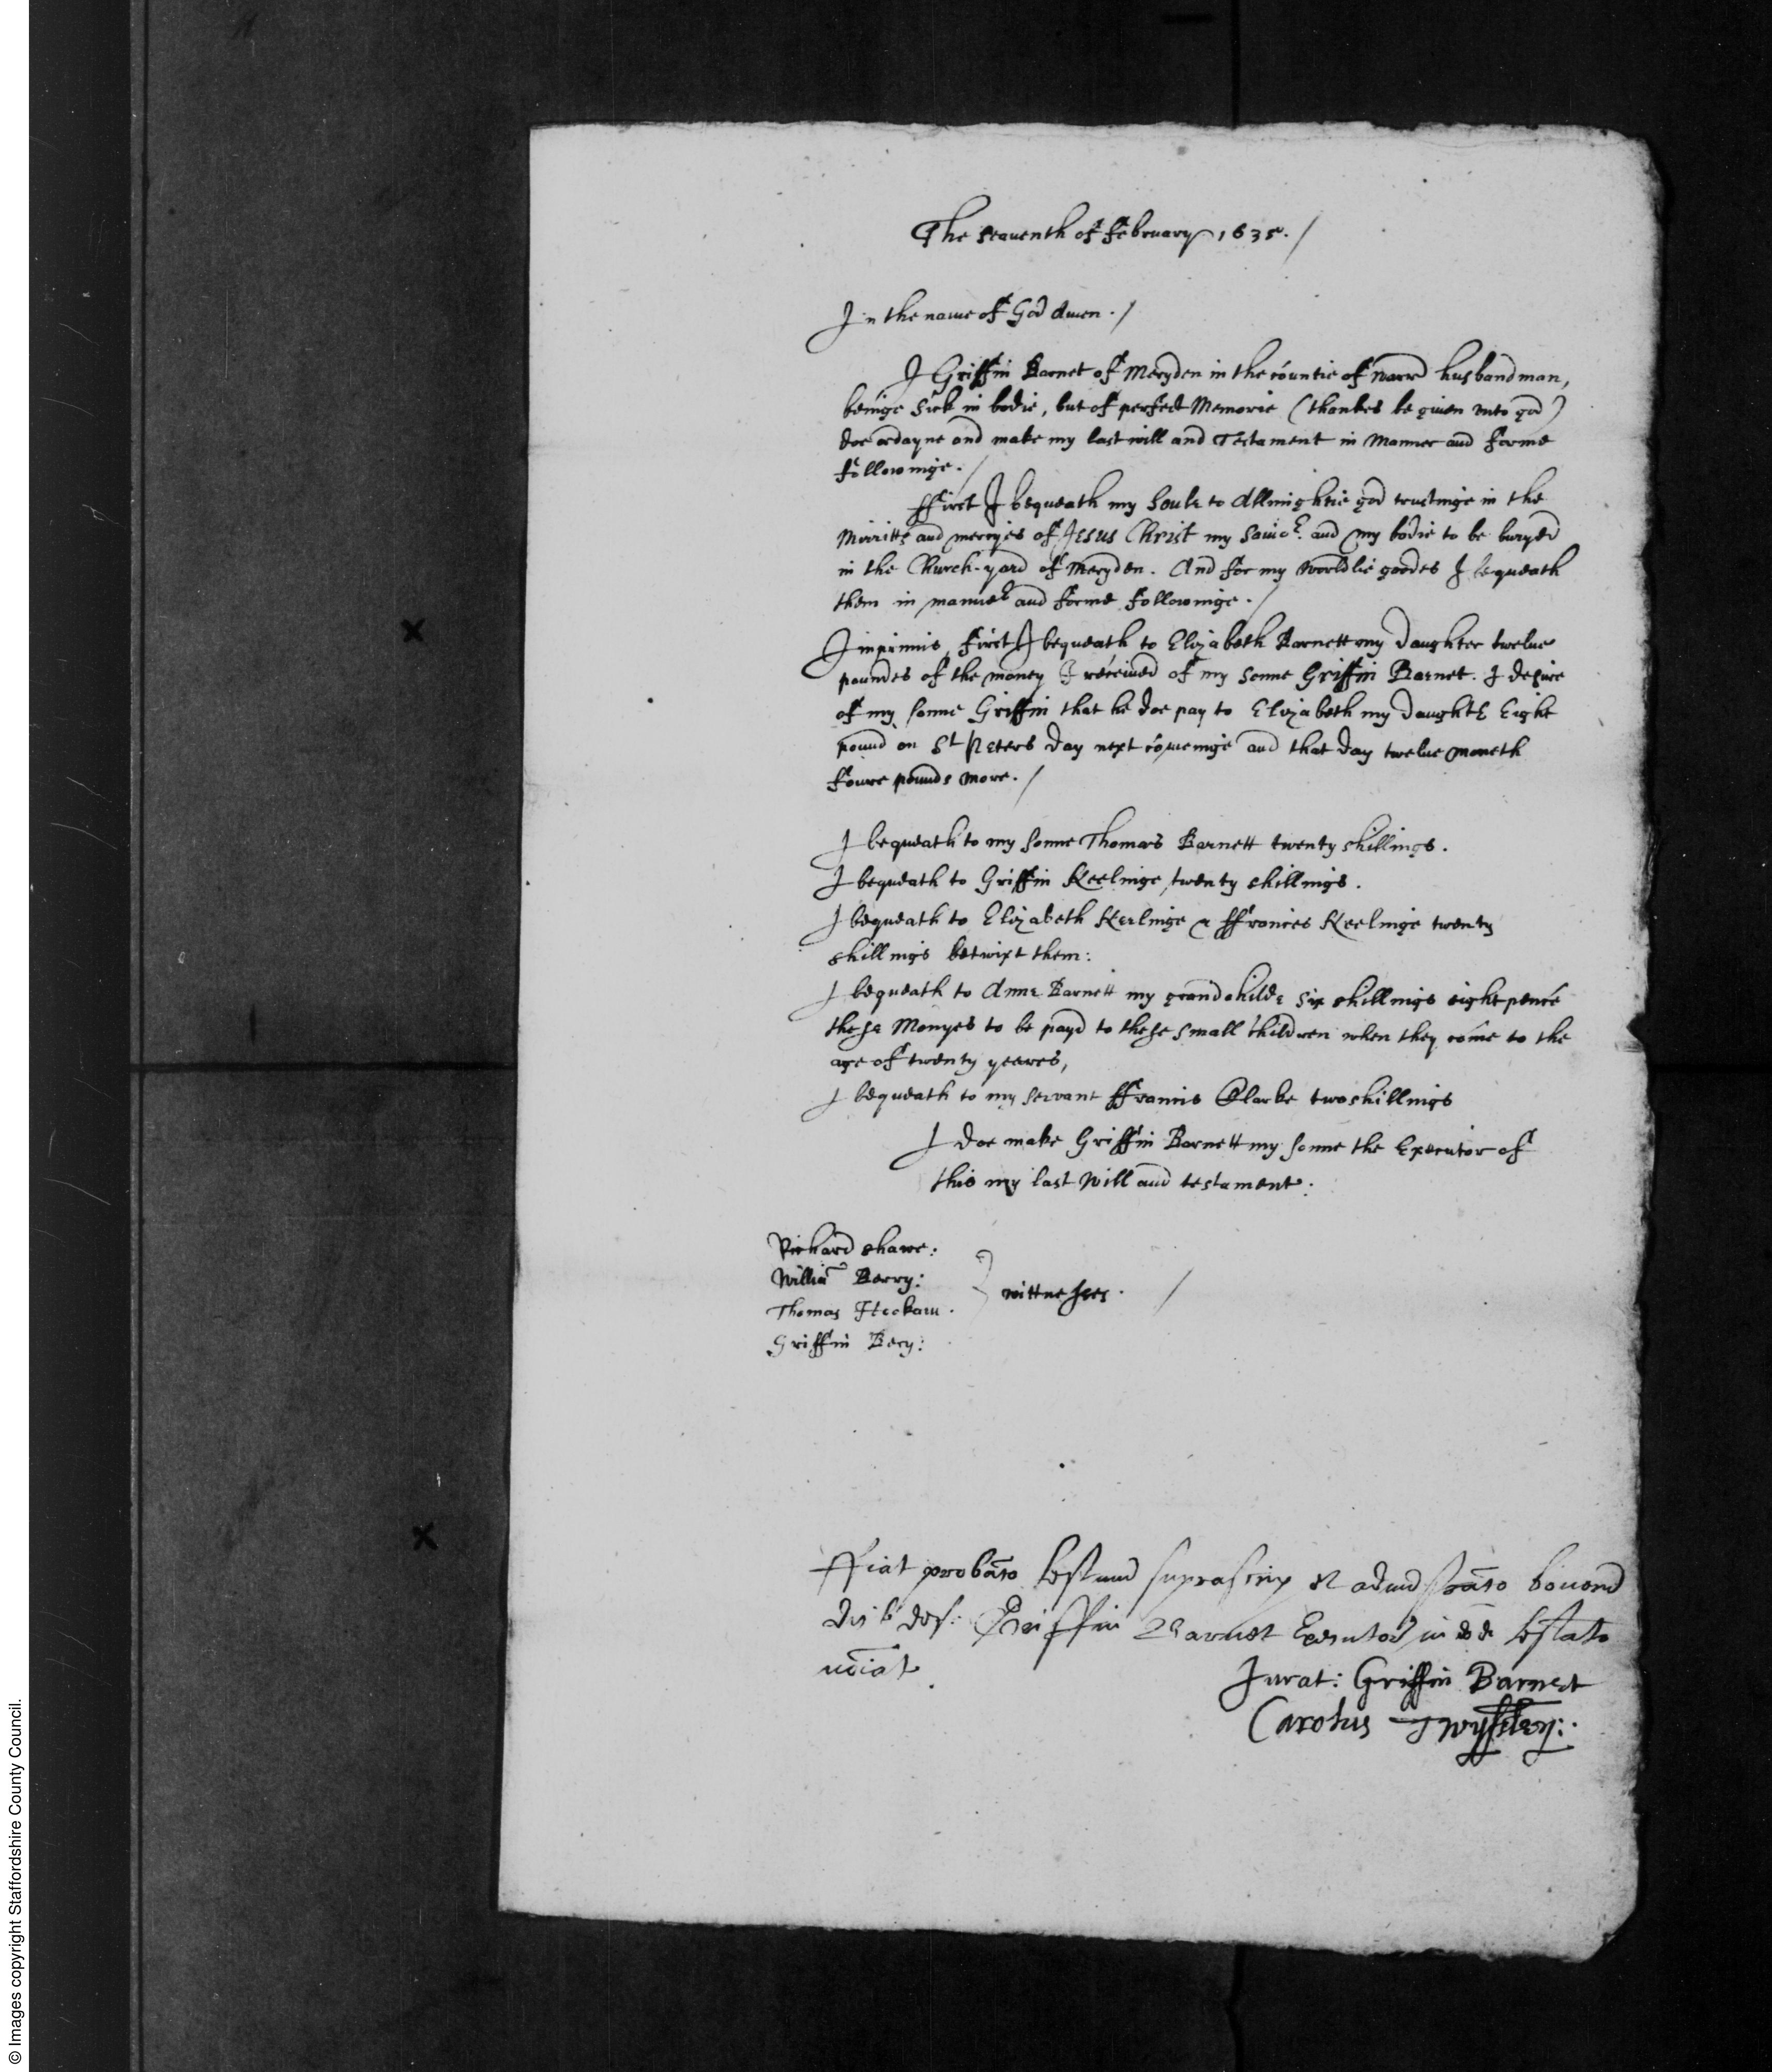 The seaventh of february 1635. /
In the name of God Amen. /
I Griffin Barnet of Meryden in the countie of Warr husbandman,
beinge sick in bodie, but of perfect Memorie (thankes be given unto god)
doe ordayne and make my last will and Testament in Manner and forme
followinge. /
ffirst I bequeath my Soule to Allmightie god trustinge in the
Mirritts and mercyes of Jesus Christ my Savior. and my bodie to be buryed
in the Church-yard of Meryden. And for my worldlie goodes I bequeath
them in manner and forme followinge. /
Imprimis, first I bequeath to Elizabeth Barnett my daughter twelve
poundes of the money I received of my sonne Griffin Barnet. I desire
of my sonne Griffin that he doe pay to Elizabeth my daughter Eight
pound on St Peters day next comeinge and that day twelve moneth
foure pounds more. /
I bequeath to my sonne Thomas Barnett twenty shillings.
I bequeath to Griffin Keelinge twenty shillings.
I bequeath to Elizabeth Keelinge & ffrances Keelinge twenty
shillings betwixt them:
I bequeath to Anne Barnett my grandchilde six shillings eight pence
these Monyes to be payd to these small children when they come to the
age of twenty yeares,
I bequeath to my servant ffrancis Clarke two shillings
I doe make Griffin Barnett my sonne the Executor of
this my last Will and testament:
Richard Shawe:
Willia Berry:
wittnesses. /
Thomas
Griffin Bery:
ffiat probato et
Griffin Barnet Executori in
Jurat: Griffin Barnet
Carolus Twysden:
© Images copyright Staffordshire County Council.